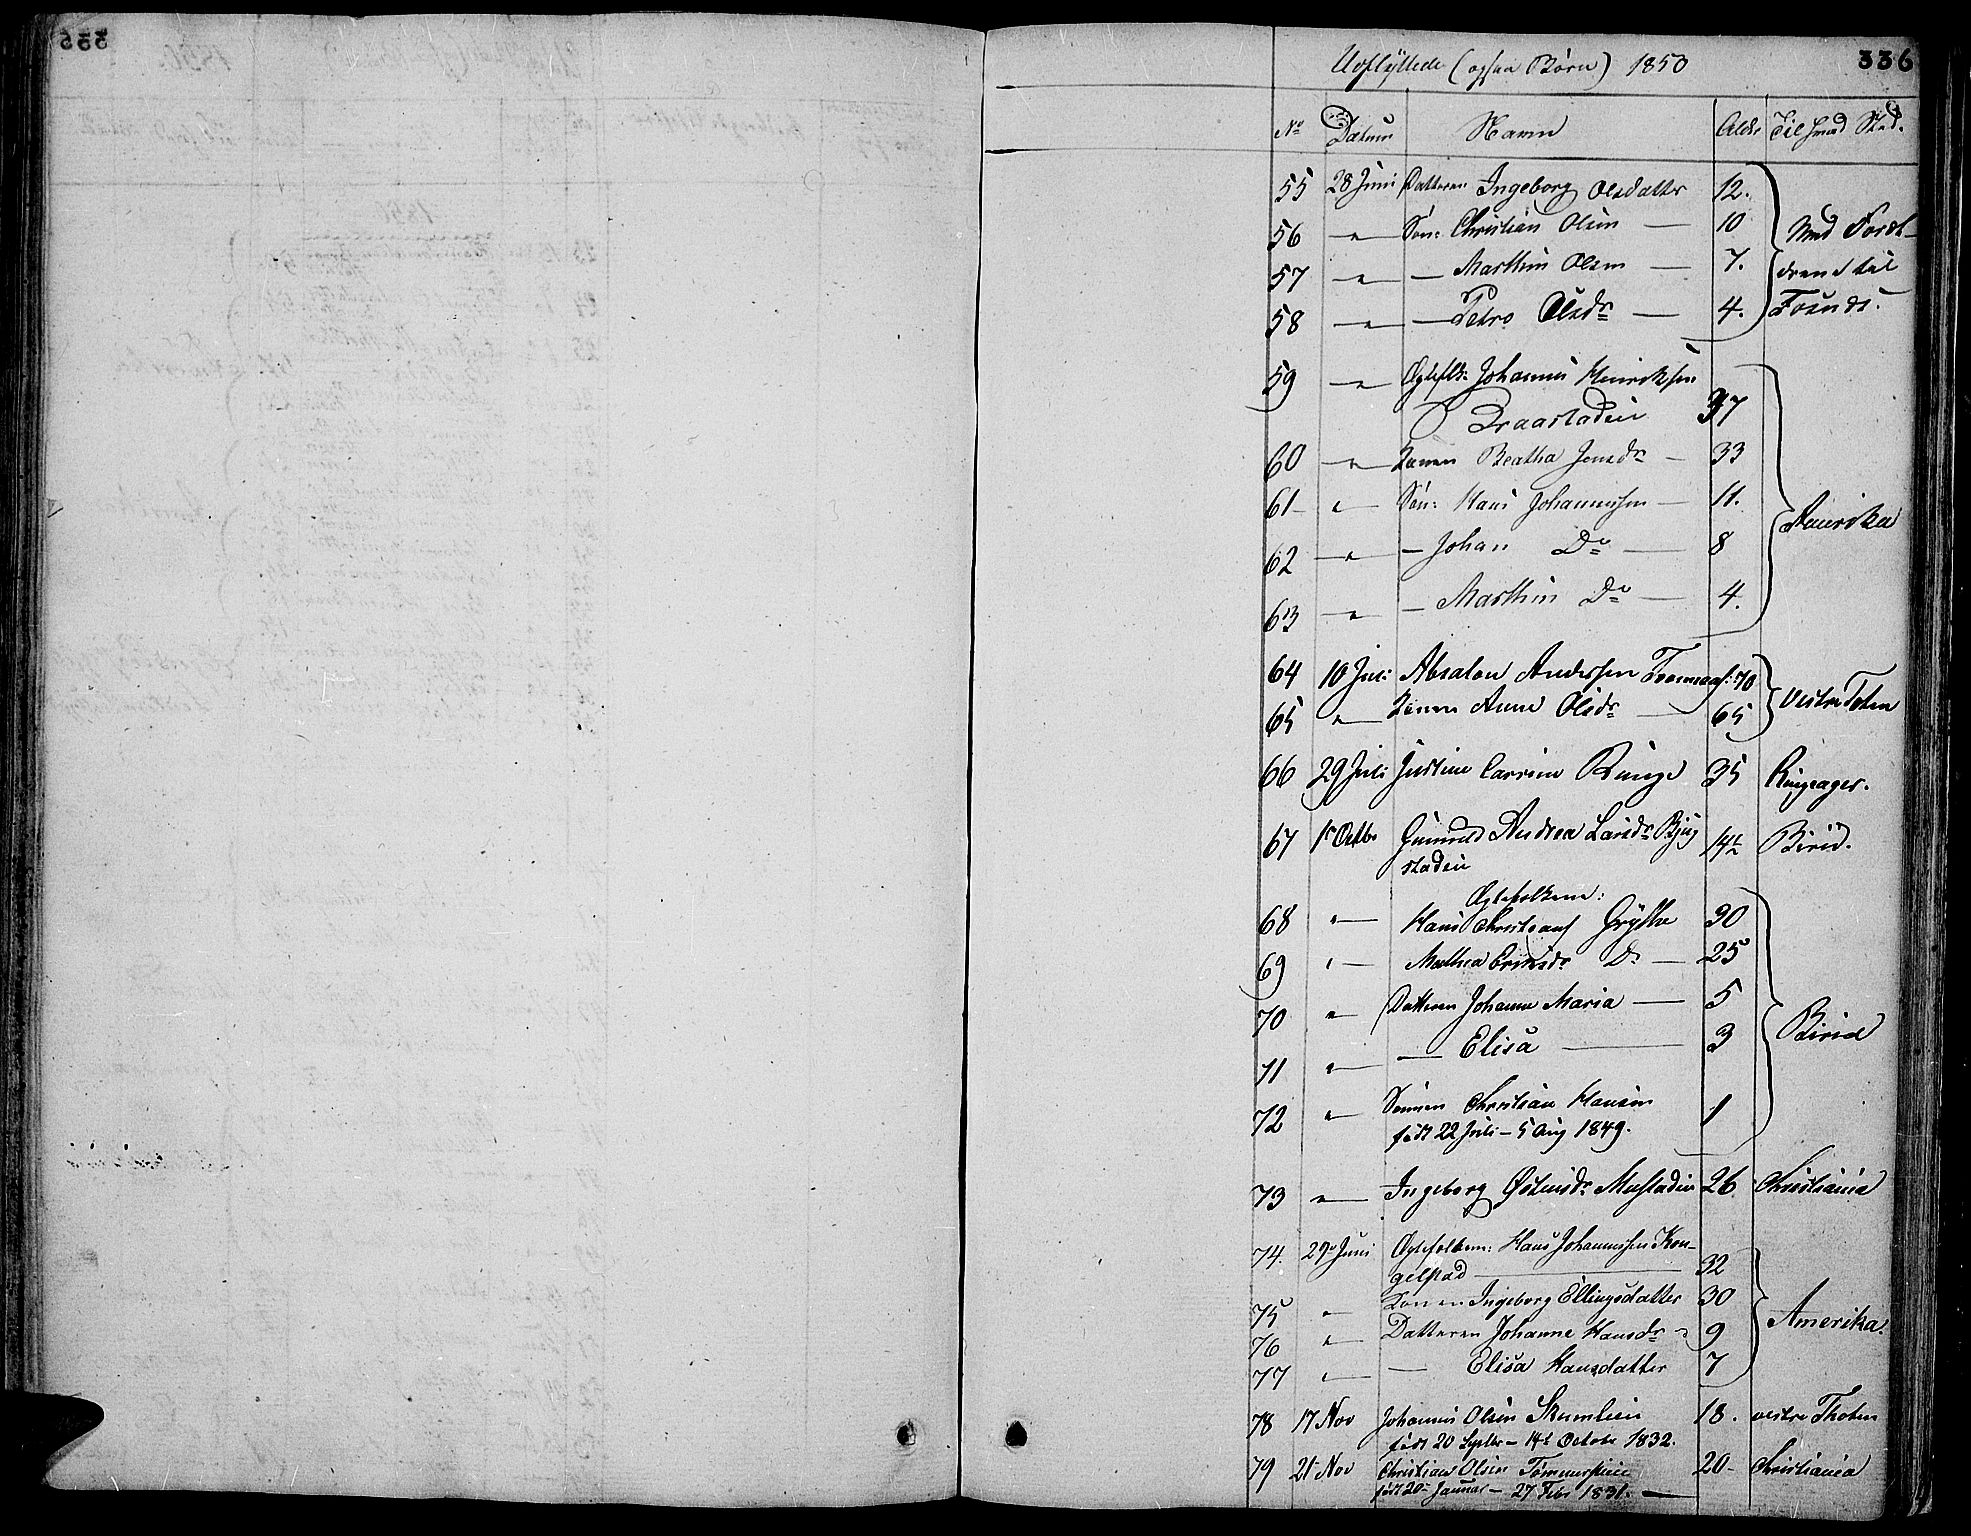 336
Udflyttede (ogsaa Børn) 1850
No Datum Navn Alder Til hvad Sted.
55 28 Juni Datteren Ingeborg Olsdatter 12.
56 " — Søn: Christian Olsen — 10 Med Foræl-
57 " — — Marthin Olsen — 7. drene til
58 " — — Petro Olsdr — 4.
59 " — Ægteflk: Johannes Henriksen
Braastadeie 37
60 " — Konen Beatha Jensdr — 33
61 " — Søn: Hans Johannessen — 11. Amerika
62 " — — Johan Do — 8
63 " — — Marthin Do — 4.
64 10 Juli Absalon Andersen 70
65 " — Konen Anne Olsdr — 65 Vestre Toten
66 29 Juli Justine Carrine Runge 35 Ringsager.
67 1e Octbr Gunnild Andrea Larsdr Bjug
stadeie 14½ Birid.
Ægtefolkene:
68 " — Hans Christians Grythe 30
69 " — Mathea Eriksdr Do — 25
70 " — Datteren Johanne Maria — 5 Birid
71 " — — Elisa — 3
72 " — Sønnen Christian Hansen 1
født 22 Juli – 5 Aug 1849.
73 " — Ingeborg Østensdr Mustadeie 26 Christiania
74. 29 Juni Ægtefolkene: Hans Johannessen Kon-
gelstad — 32
75 " Konen Ingeborg Ellingsdatter 30
76 " — Datteren Johanne Hansdr 9 Amerika.
77 " — — Elisa Hansdatter 7
78 17 Nov Johannes Olsen Skumlien 18. vestre Thoten
født 20 Septbr – 14de October 1832.
79 21 Nov Christian Olsen 20 – Christiania
født 20 Januar – 27 Febr 1831. —